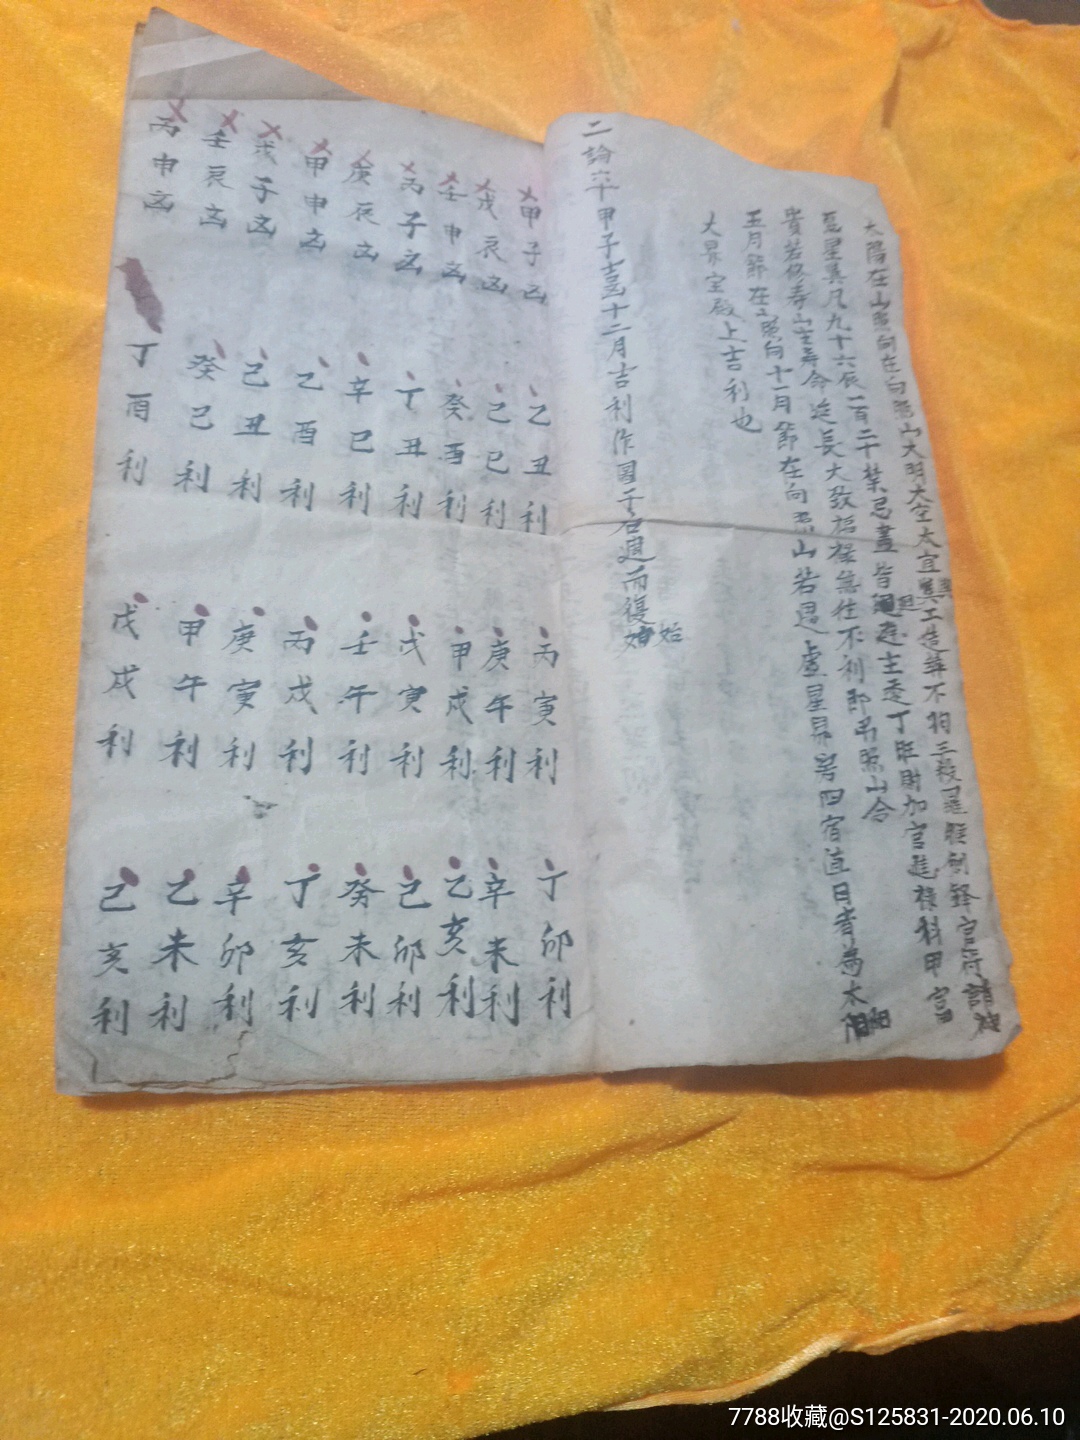 太陽在山照向在向照山大明大空太宜工造葬不拘三殺羅睺劍鋒官符
至星其凡九十六辰一百二十禁忌盡皆迴避主丁旺財加官進祿科甲富
貴若修壽山生命延長大致福祿無往不利即吊照山合
五月節在山照向十一月節在向照山若遇虛星昴房四宿值日者為太陽
大昇宝殿上吉利也
二論六甲子十二月吉利作國于右週而復始
甲子凶 乙丑利 丙寅利 丁卯利
戊辰凶 己巳利 庚午利 辛未利
壬申凶 癸酉利 甲戌利 乙亥利
丙子凶 丁丑利 戊寅利 己卯利
庚辰凶 辛巳利 壬午利 癸未利
甲申凶 乙酉利 丙戌利 丁亥利
戊子凶 己丑利 庚寅利 辛卯利
壬辰凶 癸巳利 甲午利 乙未利
丙申凶 丁酉利 戊戌利 己亥利
7788收藏@S125831-2020.06.10